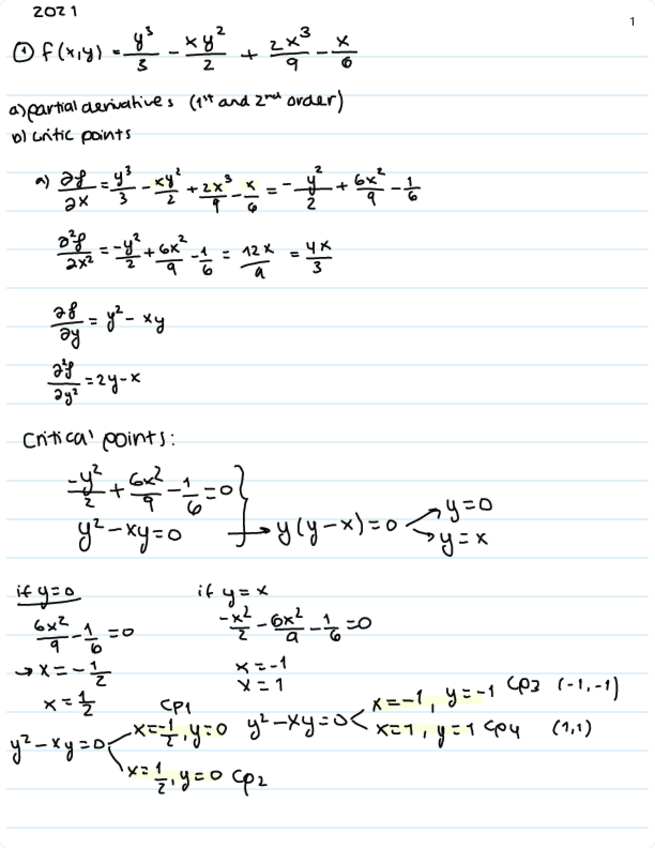 2021
1
① f(x,y) = y³/3 - xy²/2 + 2x³/9 - x/6
a) partial derivatives (1st and 2nd order)
b) critic points
a) ∂f/∂x = y³/3 - xy²/2 + 2x³/9 - x/6 = -y²/2 + 6x²/9 - 1/6
∂²f/∂x² = -y²/2 + 6x²/9 - 1/6 = 12x/9 = 4x/3
∂f/∂y = y² - xy
∂²f/∂y² = 2y - x
Critical points:
-y²/2 + 6x²/9 - 1/6 = 0 }
y² - xy = 0 → y(y-x) = 0 < y=0
y=x
if y=0
6x²/9 - 1/6 = 0
→ x = -1/2
x = 1/2
if y = x
-x²/2 - 6x²/9 - 1/6 = 0
x = -1
x = 1
y² - xy = 0
CP1
x = -1/2, y = 0
x = 1/2, y = 0 CP2
y² - xy = 0 < x = -1, y = -1 CP3 (-1,-1)
x = 1, y = 1 CP4 (1,1)